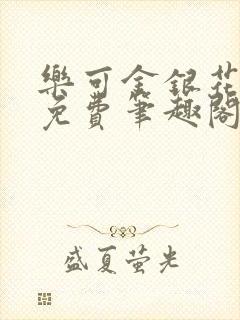 樂可金銀花
免費筆趣閣
盛夏萤光